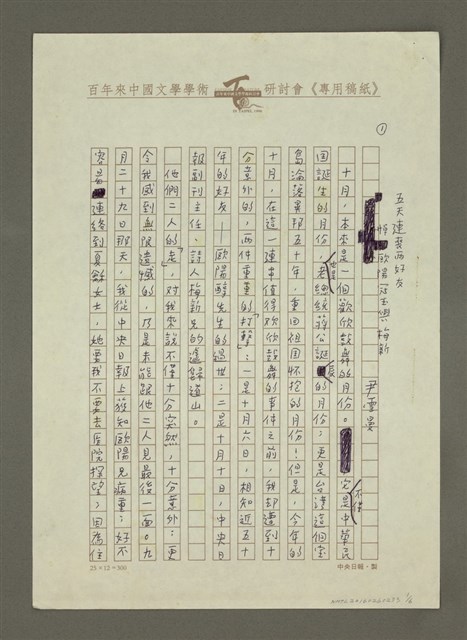 百年來中國文學學術研討會《專用稿紙》
①
五天連喪兩好友
悼歐陽醇與梅新
尹雪曼
十月,本來是一個歡欣鼓舞的月份。它不僅是中華民
國誕生的月份,也是老總統蔣公誕辰的月份;更是台灣這個寶
島淪淚異邦五十年,重回祖國懷抱的月份!但是,今年的
十月,在這一連串值得欢欣鼓舞的事件之前,我却遭到十
分意外的,兩件重重的「打擊」:一是十月六日,相知近五十
年的好友—歐陽醇先生的過世;二是十月十日,中央日
報副刊主任、詩人梅新先生的遽歸道山。
他們二人的「走」,对我來說不僅十分突然,十分意外;更
令我感到無限遺憾的,乃是未能跟他二人見最後一面。九
月二十九日那天,我從中央日報上獲知歐陽兄病重;好不
容易連絡到夏餘女士,她要我不要去医院探望;因為住
25×12=300
中央日報·製